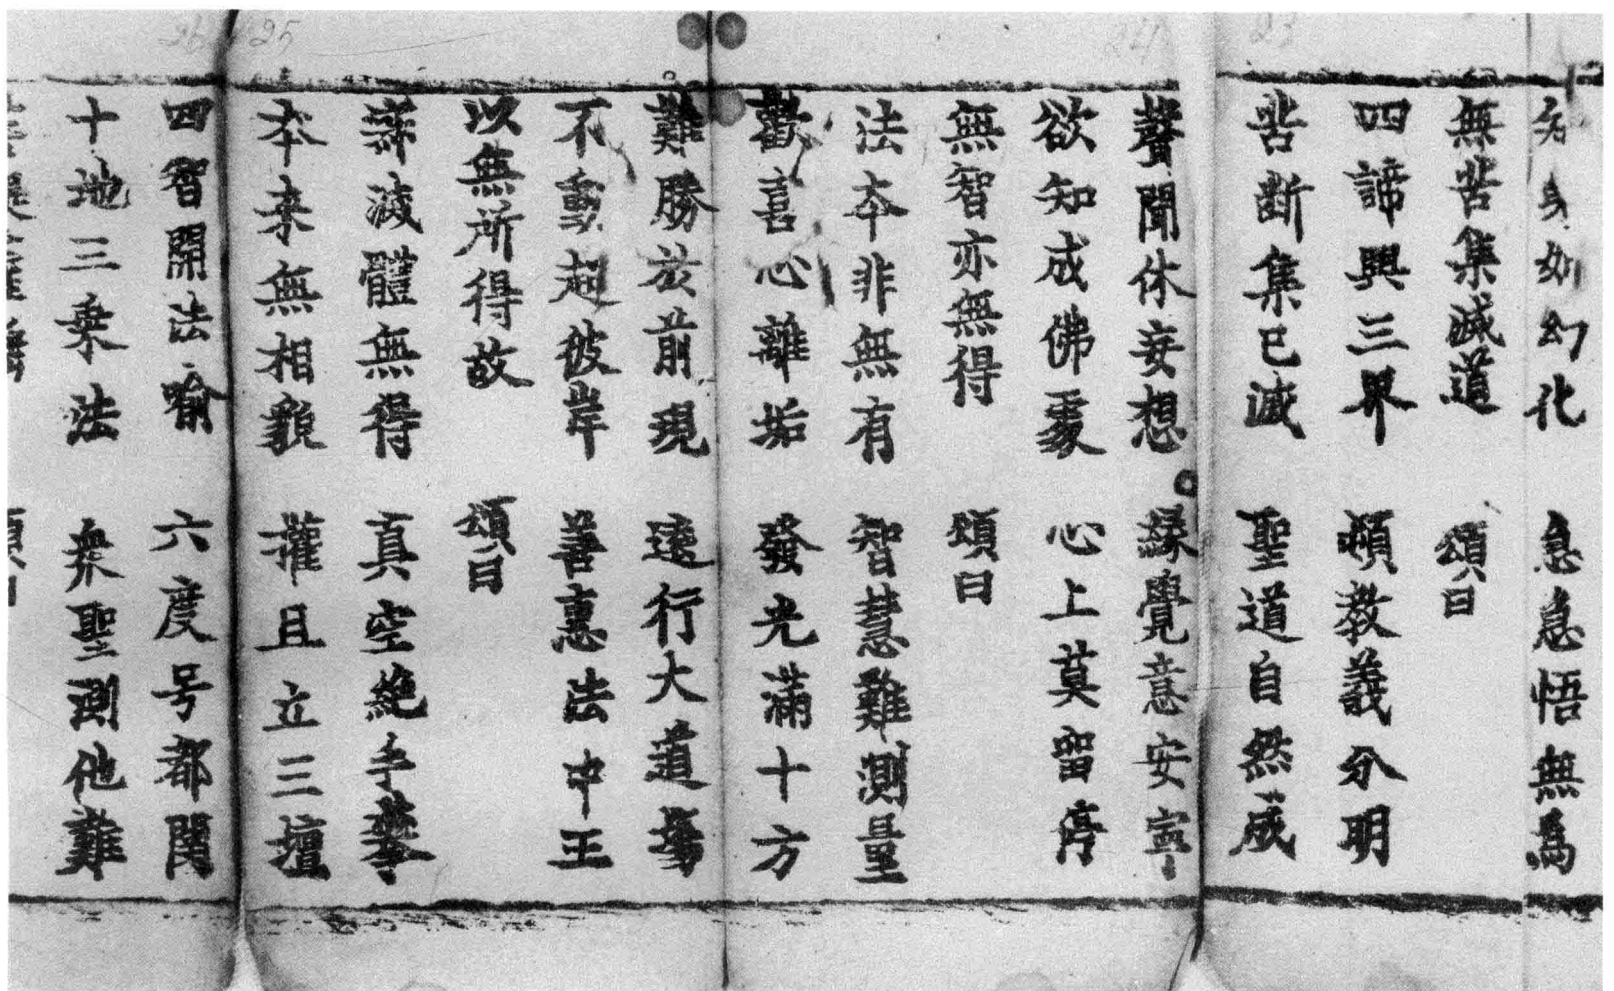 知身如幻化　急急悟無為
無苦集滅道　頌曰
四諦興三界　頓教義分明
苦斷集已滅　聖道自然成
聲聞休妄想　緣覺意安寧
欲知成佛處　心上莫留停
無智亦無得　頌曰
法本非無有　智慧難測量
歡喜心離垢　發光滿十方
難勝於前現　遠行大道場
不動超彼岸　善惠法中王
以無所得故　頌曰
寂滅體無得　真空絕手攀
本来無相貌　權且立三壇
四智開法喻　六度号都関
十地三乗法　衆聖測他難